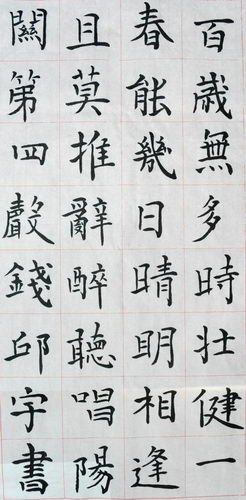 百歲無多時壯健一
春能幾日晴明相逢
且莫推辭醉聽唱陽
關第四聲錢邱字書